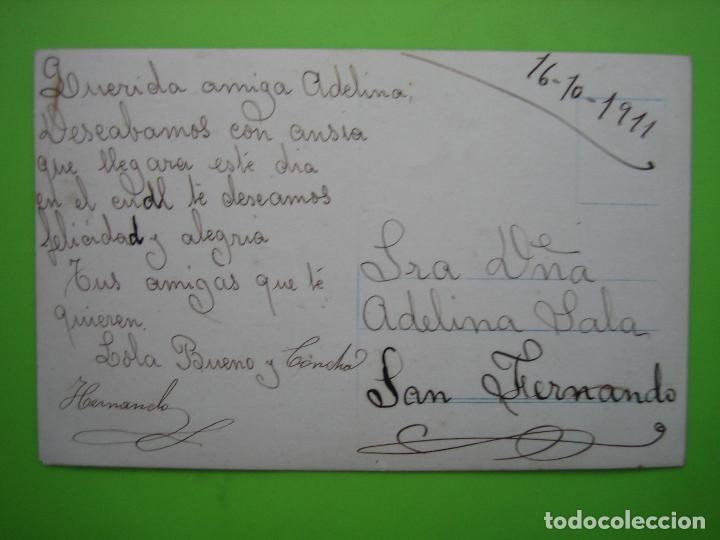 Querida amiga Adelina;
Deseabamos con ansia
que llegara esté dia
en el cual té deseamos
felicidad y alegria
Tus amigas que té
quieren.
Lola Bueno y Concha
Hernando
16-10-1911
Sra Dña
Adelina Sala
San Fernando
todocoleccion.net